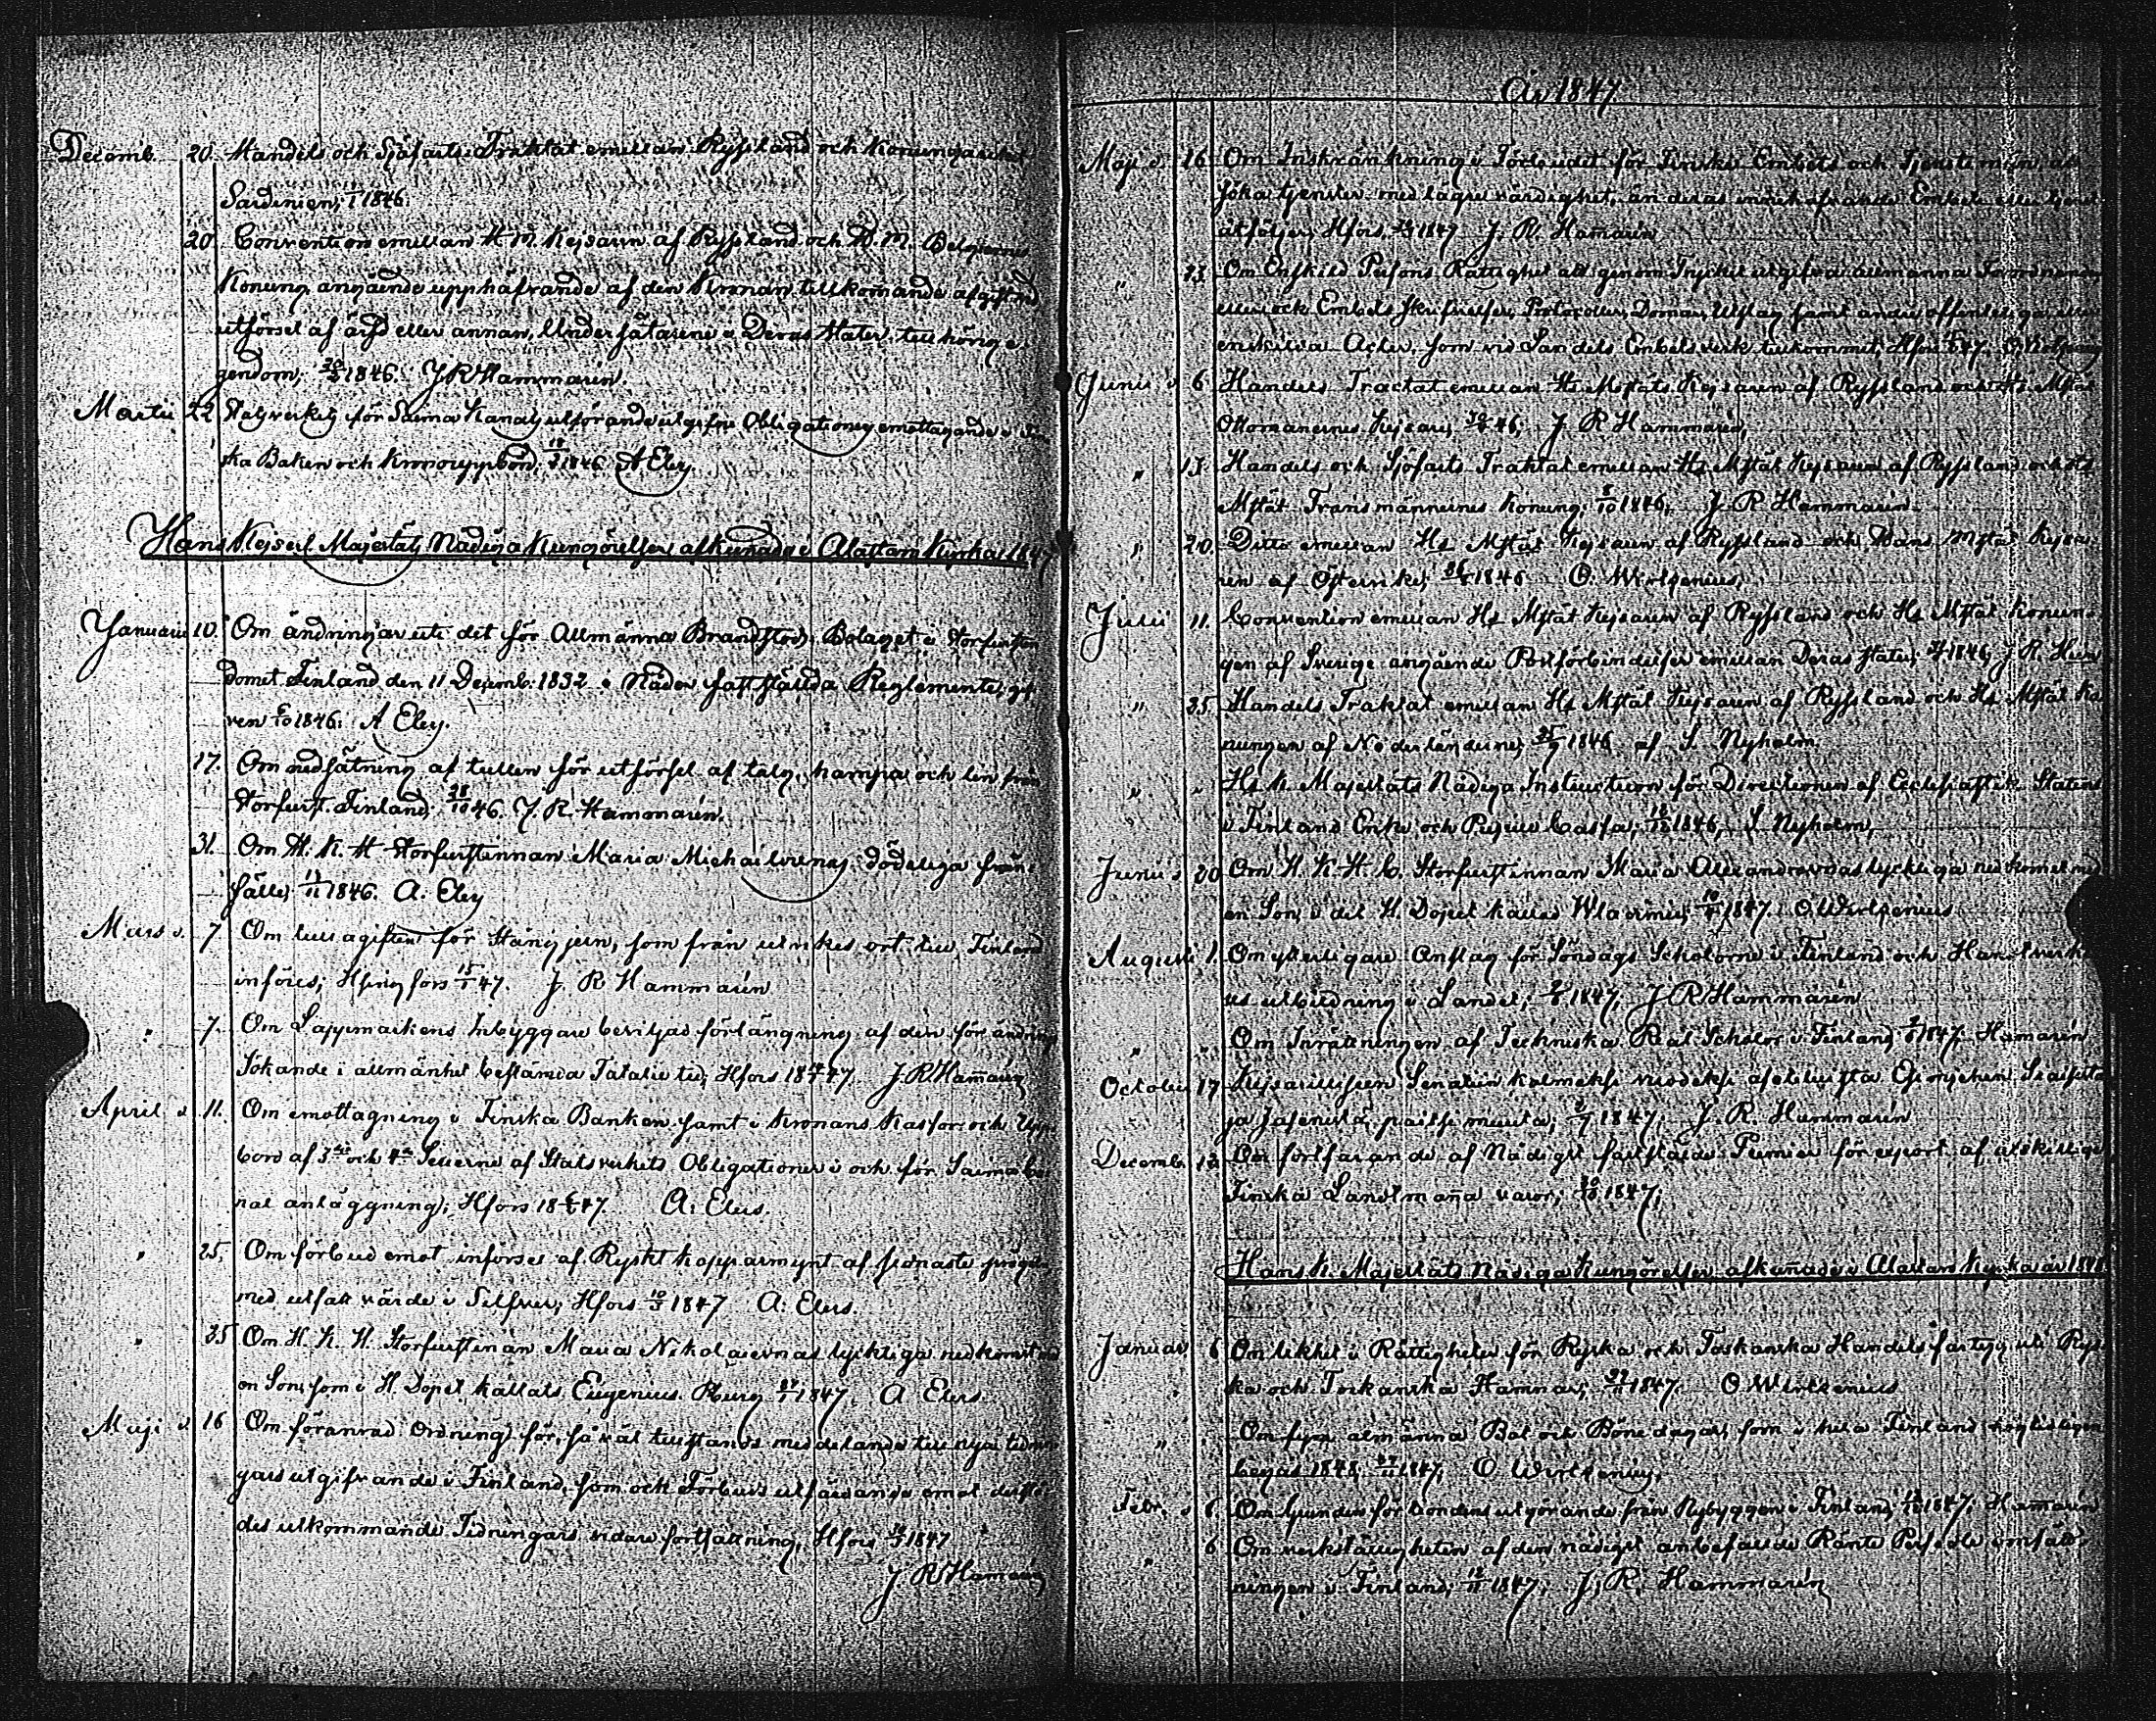 Decemb. 20. Handels och Sjöfarts Traktat emellan Ryssland och Konungariket
Sardinien; 1846.
20. Convention emellan H. M. Kejsaren af Ryssland och H. M. Belgiernes
Konung angående upphäfvande af den Kronan tillkomande afgift vid
utförsel af ärfd eller annan, Undersåtarene i Deras Stater tillhörig e-
gendom; 1846. J R Hammarén.
Martii 22 för Saima Kanals utförande utgifne Obligationers emottagande i Fin-
ska Baken och Kronouppbörd; 1846 A Elers.
Hans Kejserl Majestäts Nådiga Kungörelser afkunnade i Alattaro Kyrka 1847
Januarii 10. Om ändringar uti det för Allmänna Brandstods Bolaget i Storfursten-
dömet Finland den 11 Decemb. 1832 i Nåder fastställda Reglemente, gif-
ven 1846. A Elers.
17. Om nedsättning af tullen för utförsel af talg, hampa och lin från
Storfurst. Finland; 28/10 46. J. R. Hammarén.
31. Om H. K. H Storfurstinnan Maria Michailovnas dödeliga från-
fälle; 1846. A. Elers
Mars d. 7 Om tullafgiften för Stångjern, som från utrikes ort till Finland
införes; Hsingfors 15/1 47. J. R Hammarén
" 7. Om Lappmarkens Inbyggare beviljad förlängning af den för ändring
Sökande i allmänhet bestämda Fatalie tid; Hfors 18 47 J. R Hamarén
April d. 11. Om emottagning i Finska Banken samt i Kronans Kassor och Upp-
börd af 3die och 4de Serierne af Statsverkets Obligationer i och för Saima Ca-
nal anläggning; Hfors 18 47. A. Elers.
" 25. Om förbud emot införsel af Ryskt kopparmynt af sednaste prägel
med utsatt värde i Silfver; Hfors 10/3 1847 A. Elers.
" 25 Om H. K. H. Storfurstinan Maria Nikolaievnas lyckliga nedkomst med
en Son, som i H. Dopet kallats Eugenius. Pburg 1847 A Elers.
Maji d. 16 Om förändrad Ordning för så väl tillstånds meddelande till nya tidnin-
gars utgifvande i Finland, som ock Förbuds utfärdande emot
des utkommande Tidningars vidare fortsättning, Hfors 1847
J. R Hamarén
År 1847.
Maj d. 16 Om Inskränkning i Förbudet för Finske Embets och Tjenstemän, att
söka tjenster med lägre värdighet, än deras innehafvande Embete eller tjenst
åtföljer, Hfors, 1847 J. R. Hamarén
" 23 Om Enskild Persons Rättighet att genom Trycket utgifva allmänna Förordningar
eller ock Embets Skrifvelser, Protocoller, Domar, Utslag samt andre offentliga eller
enskilda Acter, som vid Landets Embetsverk tillkommit; Hfors 47.
Junii d 6 Handels Tractat emellan Hs Mjstäts Kejsaren af Ryssland och Hs Mjstät
Ottomanernes Kejsare; 46; J. R Hammarén,
" 13 Handels och Sjöfarts Traktat emellan Hs Mjstät Kejsaren af Ryssland och Hs
Mjstät Fransmännernes Konung; 1846; J R Hammarén
" 20. Ditto emellan Hs Mjstät Kejsaren af Ryssland och Hans Mjstät Kejsa-
ren af Österrike; 1846 O. Wirtzenius,
Julii 11. Convention emellan Hs Mjstät Kejsaren af Ryssland och Hs Mjstät Konun-
gen af Sverige angående Postförbindelser emellan Deras stater; 1846; J. R. Ham
" 25 Handels Traktat emellan Hs Mjstät Kejsaren af Ryssland och Hs Mjstät Ko-
nungen af Nederländerne; 1846 af L. Nyholm.
" " Hs K. Majestäts Nådiga Instruction för Directionen af Ecclesiastik Statens
i Finland Enke och Pupill Cassa; 1846; L Nyholm,
Junii d 20 Om H. K. H. C. Storfurstinnan Maria Alexandrovnas lyckliga nedkomst med
en Son, i det H. Dopet kallad Wladimir; 1847. O Wirtzenius
Augusti 1. Om ytterligare Anslag för Söndags Scholorne i Finland och Handtverka-
res utbildning i Landet; 1847; J R Hammarén
" " Om Inrättningen af Techniska Real Scholor i Finland; 1847; Hamarén
October 17
1847; J. R. Hammarén
Decemb. 12 Om fortfarande af Nådigst fastställde Premier för export af åtskillige
Finska Landtmana varor; 1847;
Hans K. Majestäts Nådiga Kungörelser afkunade i Alattaro Kyrka år 1848
Januar. 6 Om likhet i Rättigheter för Ryska och Toskanska Handelsfartyg uti Rys-
ka och Toskanska Hamnar; 1847. O Wirtzenius
" " Om fyra almänna Bot och Böne dagar, som i hela Finland
begås 1848; 1847; O Wirtzenius,
Febr. d 6. Om från Nybyggen i Finland; 1847. Hamarén
" 6 Om verkställigheten af den nådigst anbefallde Ränte Persedle omsätt-
ningen i Finland; 1847; J. R. Hammarén